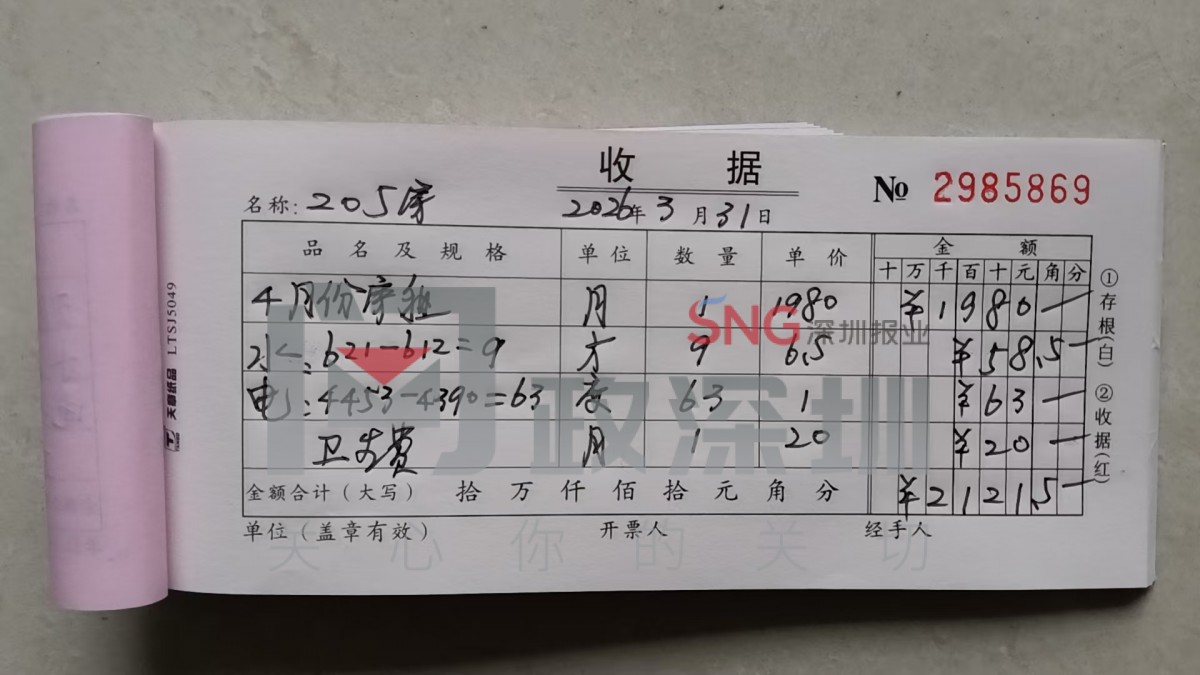 收 据
№ 2985869
名称: 205房 2026年3月31日
品名及规格 单位 数量 单价 金额
十万千百十元角分
4月份房租 月 1 1980 ¥1980
水: 621-612=9 方 9 6.5 ¥58.5
电: 4453-4390=63 度 63 1 ¥63
卫生费 月 1 20 ¥20
金额合计(大写) 拾 万 仟 佰 拾 元 角 分 ¥2121.5
单位(盖章有效) 开票人 经手人
①存根(白) ②收据(红)
天章纸品 LTSJ5049
SNG 深圳报业
问政深圳
关心你的关切